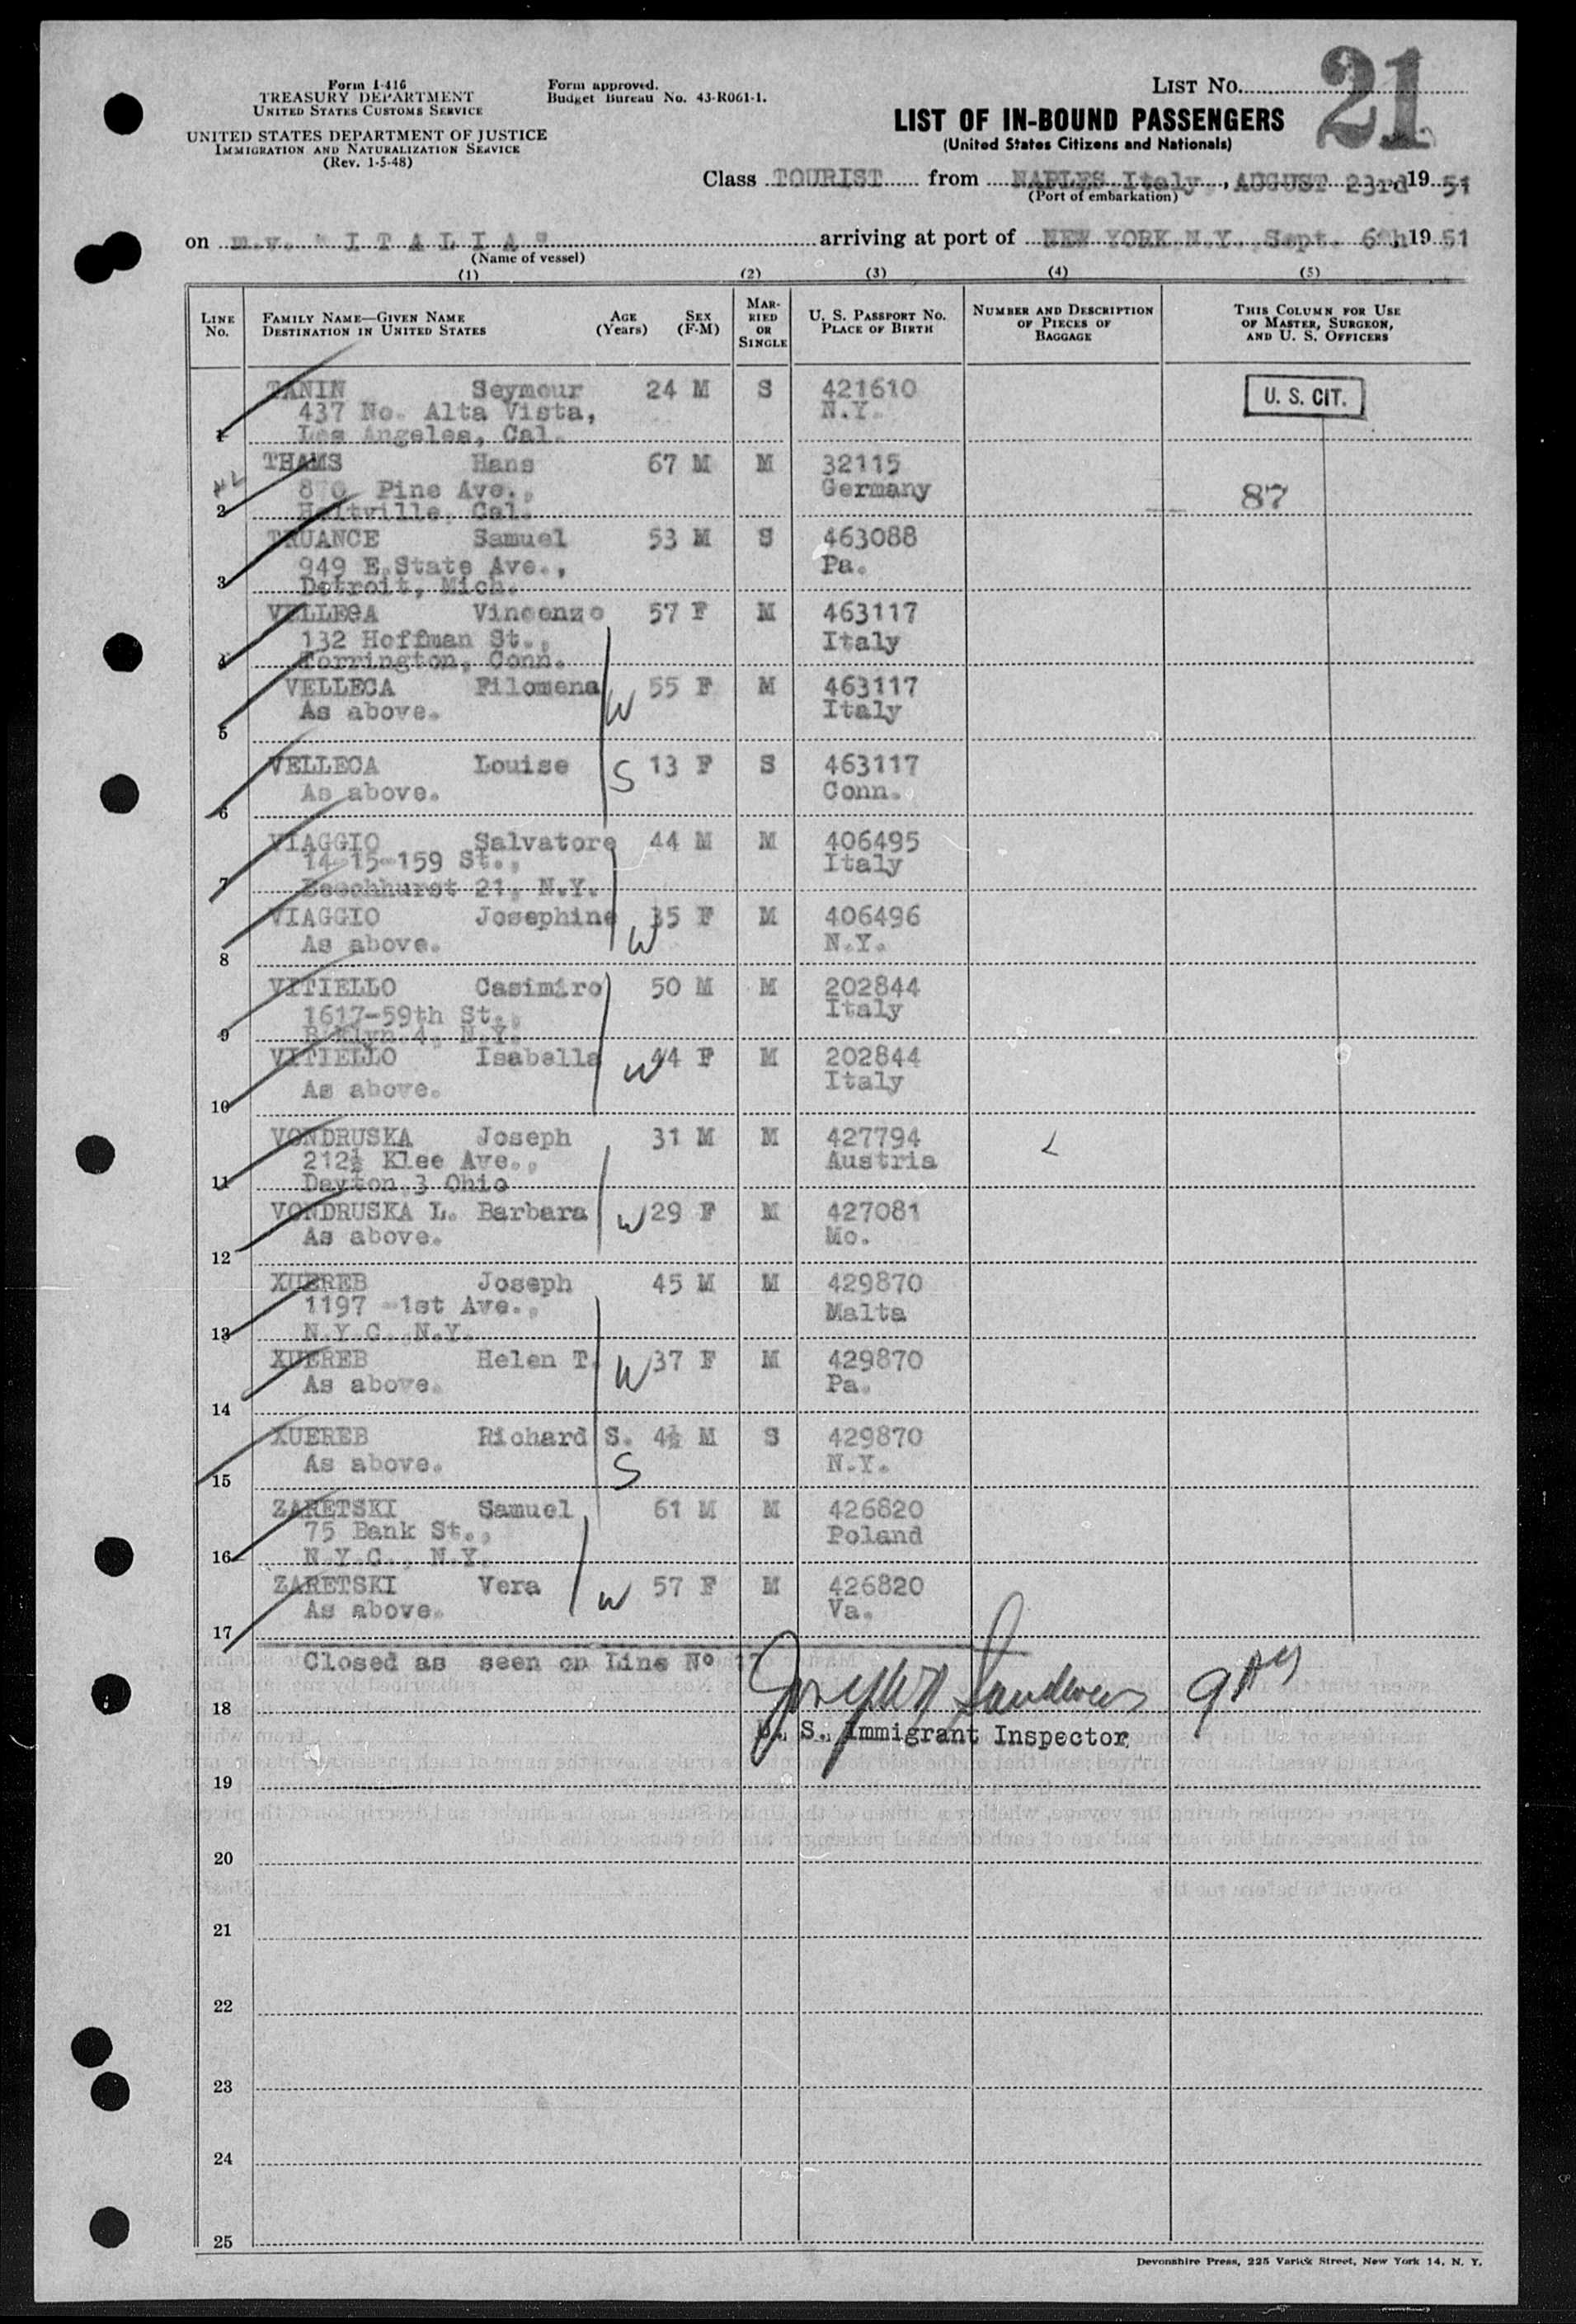 Form I-416
TREASURY DEPARTMENT
UNITED STATES CUSTOMS SERVICE
UNITED STATES DEPARTMENT OF JUSTICE
IMMIGRATION AND NATURALIZATION SERVICE
(Rev. 1-5-48)
Form approved.
Budget Bureau No. 43-R061-1.
LIST No. 21
LIST OF IN-BOUND PASSENGERS
(United States Citizens and Nationals)
Class TOURIST from NAPLES Italy, AUGUST 23rd 19 51
(Port of embarkation)
on m.v. "ITALIA" arriving at port of NEW YORK N.Y. Sept. 6th 19 51
(Name of vessel)
(1) (2) (3) (4) (5)
LINE No. FAMILY NAME—GIVEN NAME DESTINATION IN UNITED STATES AGE (Years) SEX (F-M) MARRIED OR SINGLE U. S. PASSPORT No. PLACE OF BIRTH NUMBER AND DESCRIPTION OF PIECES OF BAGGAGE THIS COLUMN FOR USE OF MASTER, SURGEON, AND U. S. OFFICERS
TANIN Seymour 24 M S 421610 U. S. CIT.
437 No. Alta Vista, N.Y.
1 Los Angeles, Cal.
THAMS Hans 67 M M 32115
870 Pine Ave., Germany 87
2 Holtville, Cal.
TRUANCE Samuel 53 M S 463088
949 E.State Ave., Pa.
3 Detroit, Mich.
VELLECA Vincenzo 57 F M 463117
132 Hoffman St., Italy
4 Torrington, Conn.
VELLECA Filomena W 55 F M 463117
As above. Italy
5
VELLECA Louise S 13 F S 463117
As above. Conn.
6
VIAGGIO Salvatore 44 M M 406495
14-15-159 St., Italy
7 Beechhurst 21, N.Y.
VIAGGIO Josephine W 35 F M 406496
As above. N.Y.
8
VITIELLO Casimiro 50 M M 202844
1617-59th St., Italy
9 B'klyn 4, N.Y.
VITIELLO Isabella W 44 F M 202844
As above. Italy
10
VONDRUSKA Joseph 31 M M 427794
212½ Klee Ave., Austria
11 Dayton 3 Ohio
VONDRUSKA L. Barbara W 29 F M 427081
As above. Mo.
12
XUEREB Joseph 45 M M 429870
1197 -1st Ave., Malta
13 N.Y.C., N.Y.
XUEREB Helen T. W 37 F M 429870
As above. Pa.
14
XUEREB Richard S. 4½ M S 429870
As above. S N.Y.
15
ZARETSKI Samuel 61 M M 426820
75 Bank St., Poland
16 N.Y.C., N.Y.
ZARETSKI Vera W 57 F M 426820
As above. Va.
17
Closed as seen on Line Nº 17
18
U. S. Immigrant Inspector
19
20
21
22
23
24
25
Devonshire Press, 225 Varick Street, New York 14, N. Y.